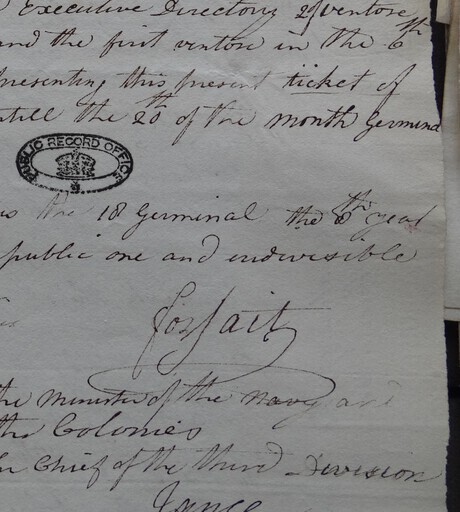 Executive Directory 29 ventose
and the first ventose in the 6th
presenting this present ticket of
untill the 20th of the month Germinal
PUBLIC RECORD OFFICE
the 18 Germinal the 8th year
public one and indivisible
forfait
the Minister of the Navy and
the Colonies
Chief of the third Division